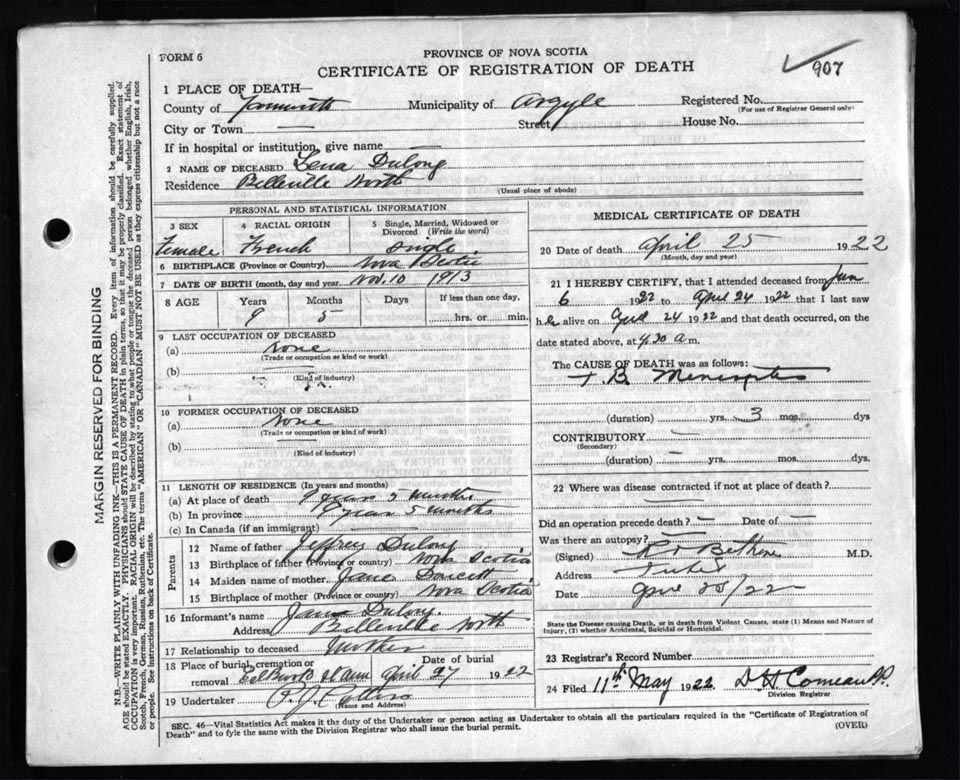 FORM 6
PROVINCE OF NOVA SCOTIA
CERTIFICATE OF REGISTRATION OF DEATH
907
1 PLACE OF DEATH—
County of Yarmouth Municipality of Argyle Registered No.
(For use of Registrar General only)
City or Town — Street House No.
If in hospital or institution, give name —
2 NAME OF DECEASED Lena Dulong
Residence Belleville North
(Usual place of abode)
PERSONAL AND STATISTICAL INFORMATION
3 SEX 4 RACIAL ORIGIN 5 Single, Married, Widowed or Divorced (Write the word)
Female French Single
6 BIRTHPLACE (Province or Country) Nova Scotia
7 DATE OF BIRTH (month, day and year) Nov. 10 1913
8 AGE Years Months Days If less than one day,
9 5 hrs. or min.
9 LAST OCCUPATION OF DECEASED
(a) none
(Trade or occupation or kind or work)
(b)
(Kind of industry)
10 FORMER OCCUPATION OF DECEASED
(a) none
(Trade or occupation or kind of work)
(b) —
(Kind of industry)
11 LENGTH OF RESIDENCE (In years and months)
(a) At place of death 9 years 5 months
(b) In province 9 years 5 months
(c) In Canada (if an immigrant)
Parents
12 Name of father Jeffrey Dulong
13 Birthplace of father (Province or country) Nova Scotia
14 Maiden name of mother Jane
15 Birthplace of mother (Province or country) Nova Scotia
16 Informant's name Jane Dulong.
Address Belleville North
17 Relationship to deceased Mother
18 Place of burial, cremation or removal Date of burial
April 27 1922
19 Undertaker
(Name and Address)
MEDICAL CERTIFICATE OF DEATH
20 Date of death April 25 1922
(Month, day and year)
21 I HEREBY CERTIFY, that I attended deceased from Jan
6 1922 to April 24 1922 that I last saw
her alive on April 24 1922 and that death occurred, on
date stated above, at 9.30 a m.
The CAUSE OF DEATH was as follows:
T. B. Meningitis
(duration) yrs. 3 mos. dys
CONTRIBUTORY —
(Secondary)
(duration) — yrs. mos. dys.
22 Where was disease contracted if not at place of death?
—
Did an operation precede death? — Date of —
Was there an autopsy? —
(Signed) Bethune M.D.
Address Tusket
Date April 25/22
State the Disease causing Death, or in death from Violent Causes, state (1) Means and Nature of
Injury, (2) whether Accidental, Suicidal or Homicidal.
23 Registrar's Record Number
24 Filed 11th May 1922 D H Comeau
Division Registrar
SEC. 46—Vital Statistics Act makes it the duty of the Undertaker or person acting as Undertaker to obtain all the particulars required in the "Certificate of Registration of
Death" and to fyle the same with the Division Registrar who shall issue the burial permit. (OVER)
MARGIN RESERVED FOR BINDING
N.B.—WRITE PLAINLY WITH UNFADING INK—THIS IS A PERMANENT RECORD. Every item of information should be carefully supplied.
AGE should be stated EXACTLY. PHYSICIANS should STATE CAUSE OF DEATH in plain terms, so that it may be properly classified. Exact statement of
OCCUPATION is very important. RACIAL ORIGIN will be described by stating to what people or tongue the deceased person belonged whether English, Irish,
Scotch, French, German, Russian, Ruthenian, etc. The terms "AMERICAN" OR "CANADIAN" MUST NOT BE USED as they express citizenship but not a race
or people. See instructions on back of Certificate.